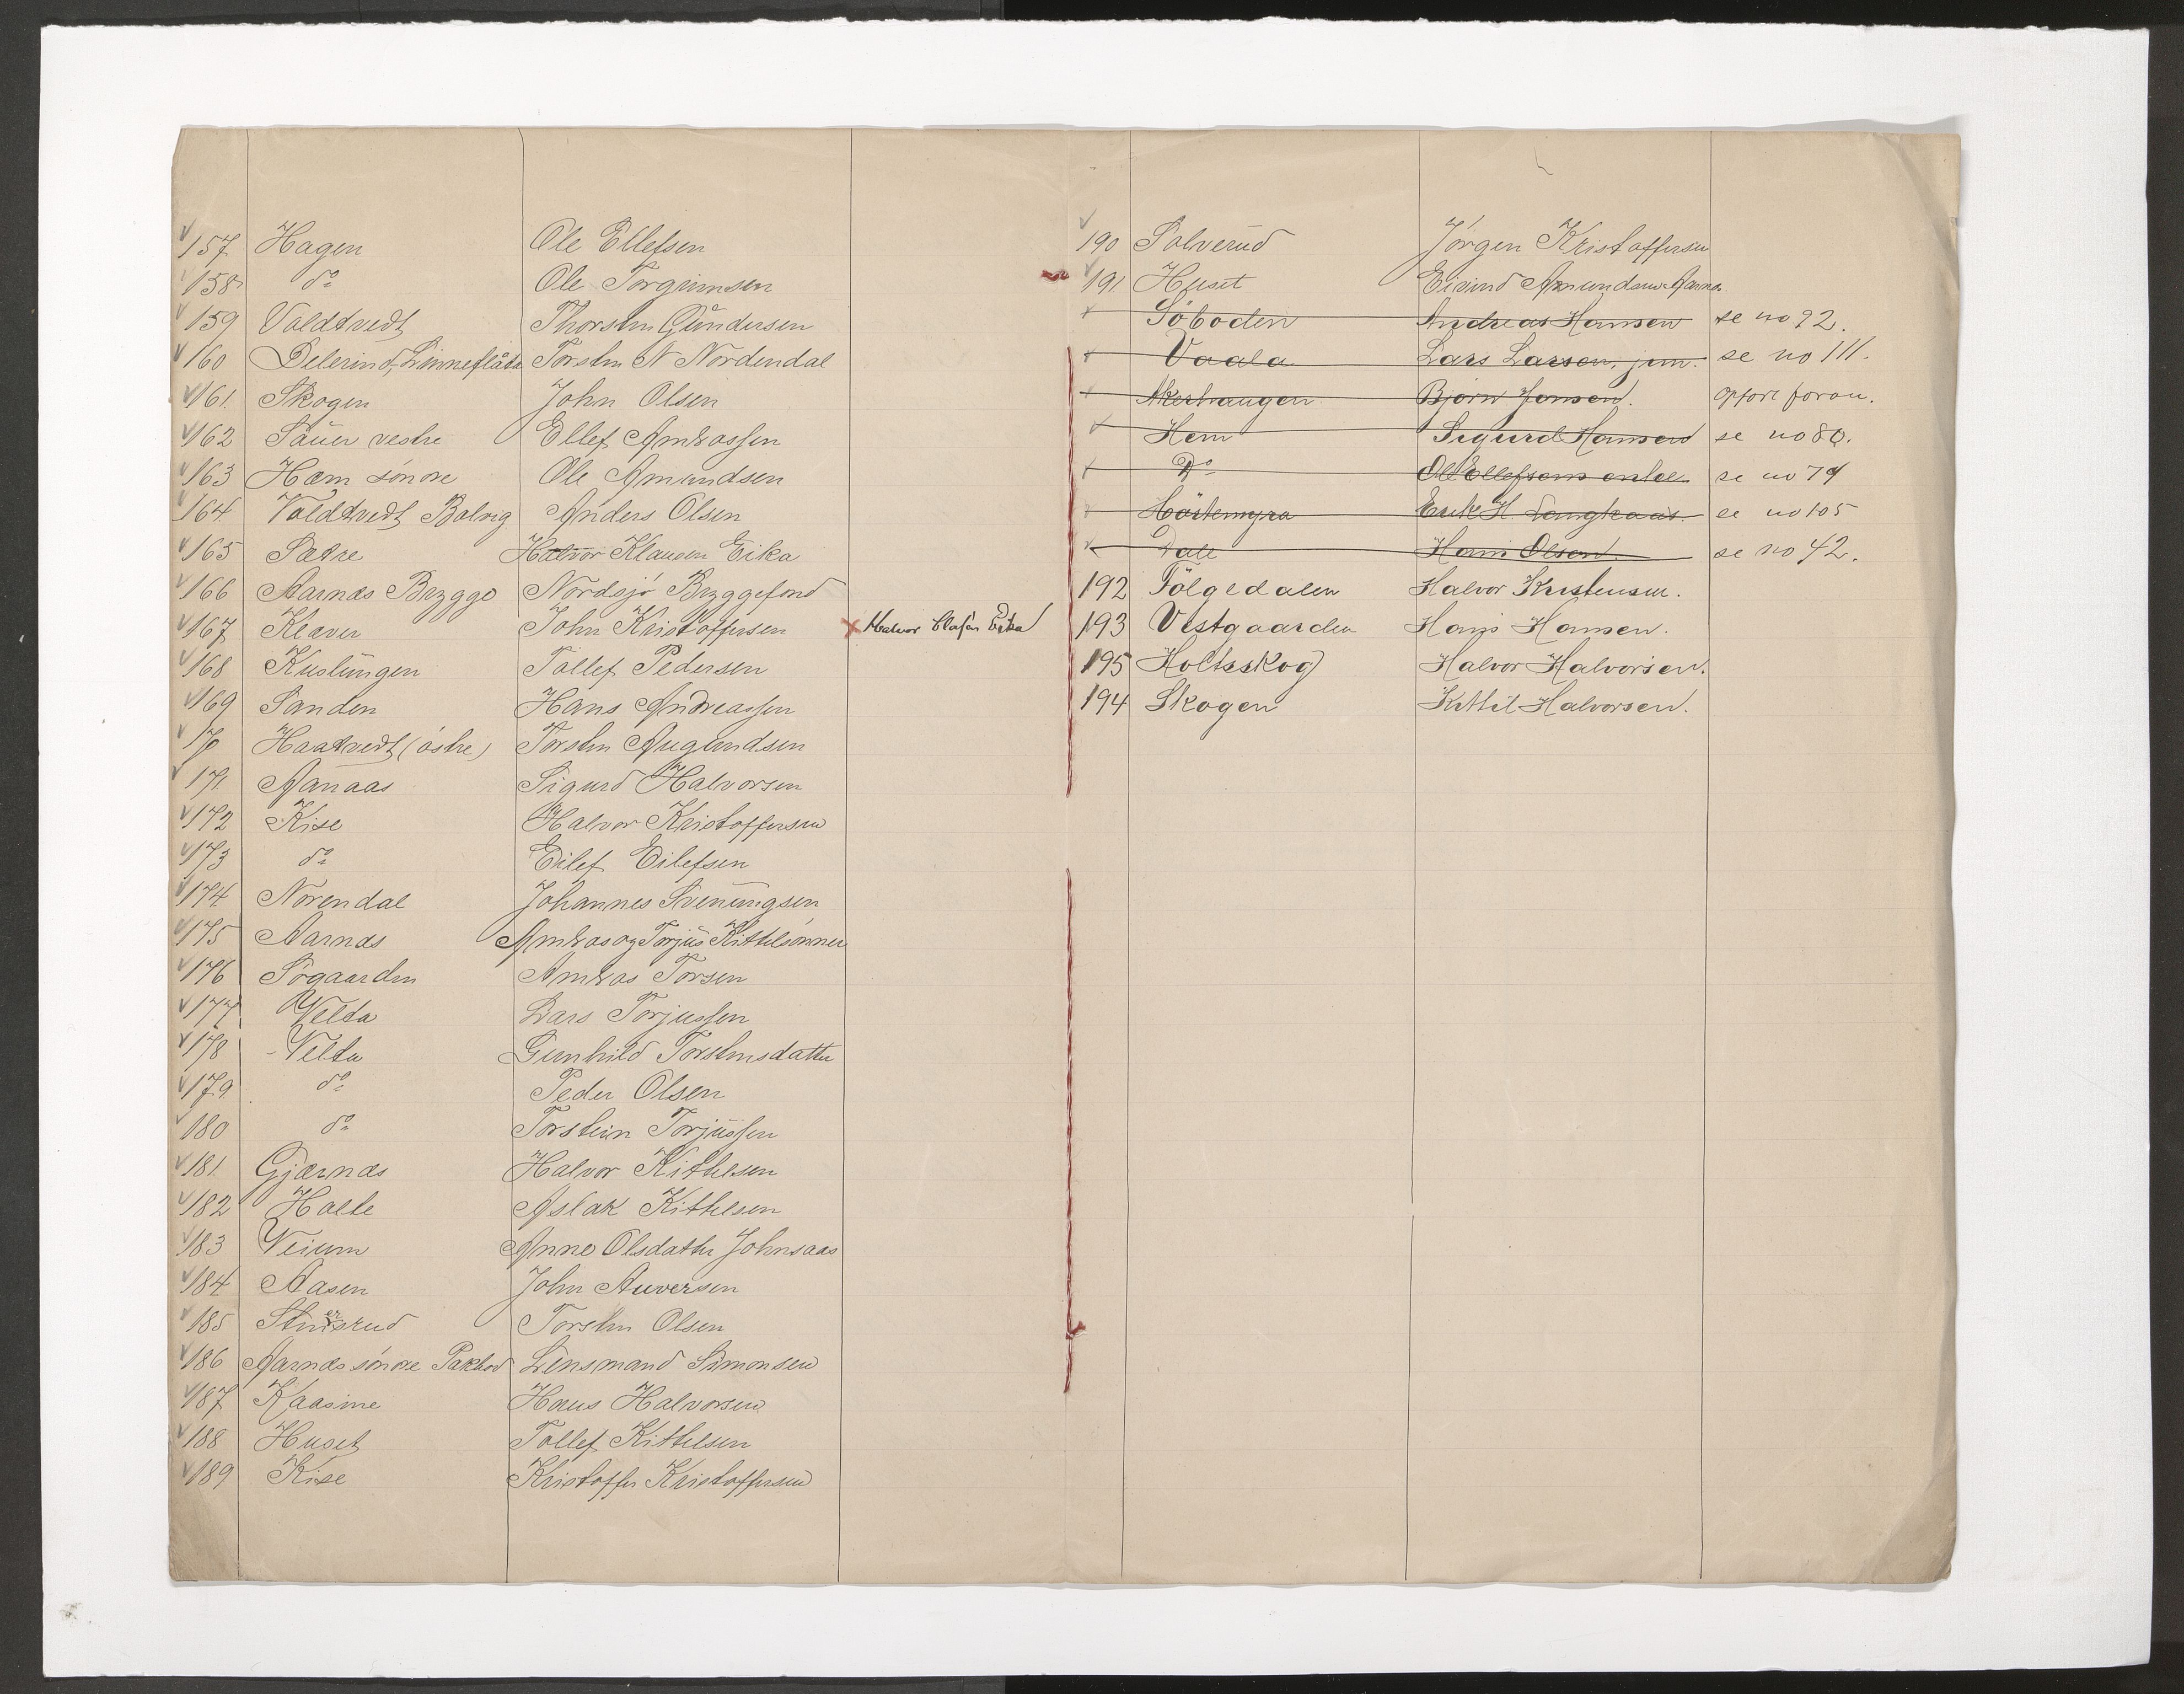 157 Hagen Ole Ellefsen
158 do Ole Torgrimsen
159 Valdtvedt Thorstein Gundersen
160 Torstein N Nordendal
161 Skogen John Olsen
162 Sauer vestre Ellef Ambrossen
163 Hæm söndre Ole Amundsen
164 Valdtvedt Bolvig Anders Olsen
165 Sætre Halvor Klausen Eika
166 Aarnæs Brygge Nordsjö Bryggefond
167 Klæver John Kristoffersen x Halvor Clasen Eika
168 Kuslungen Tollef Pedersen
169 Sanden Hans Andreassen
170 Haatvedt (östre) Torstein Augundsen
171 Aanaas Sigurd Halvorsen
172 Kise Halvor Kristoffersen
173 do Eilef Eilefsen
174 Norendal Johannes Svenungsen
175 Aarnæs Ambros og Torjus Kittilsönner
176 Sögaarden Ambros Torsen
177 Velta Lars Torjussen
178 Velta Gunhild Torsteinsdatter
179 do Peder Olsen
180 do Torstein Torjussen
181 Gjærnæs Halvor Kittilsen
182 Holte Aslak Kittilsen
183 Veium Anne Olsdatter Johnsaas
184 Aasen John Auversen
185 Torstein Olsen
186 Aarnæs söndre Pakbod Lensmand Simonsen
187 Kaasine Hans Halvorsen
188 Huset Tollef Kittilsen
189 Kise Kristoffer Kristoffersen
190 Solverud Jörgen Kristoffersen
191 Huset Eivind Amundsen Aarnæs
Söboden Andreas Hansen se no 92.
Vaala Lars Larsen, jun. se no 111.
Akerhaugen Björn Jonsen. opfört foran.
Hem Sigurd Hansen se no 80.
Do Ole Ellefsens enke se no 79
Erik H. Langkaas. se no 105
Dale Hans Olsen se no 42.
192 Fölgedalen Halvor Kristensen.
193 Vestgaarden Hans Hansen.
195 Holtskog Halvor Halvorsen.
194 Skogen Kittil Halvorsen.